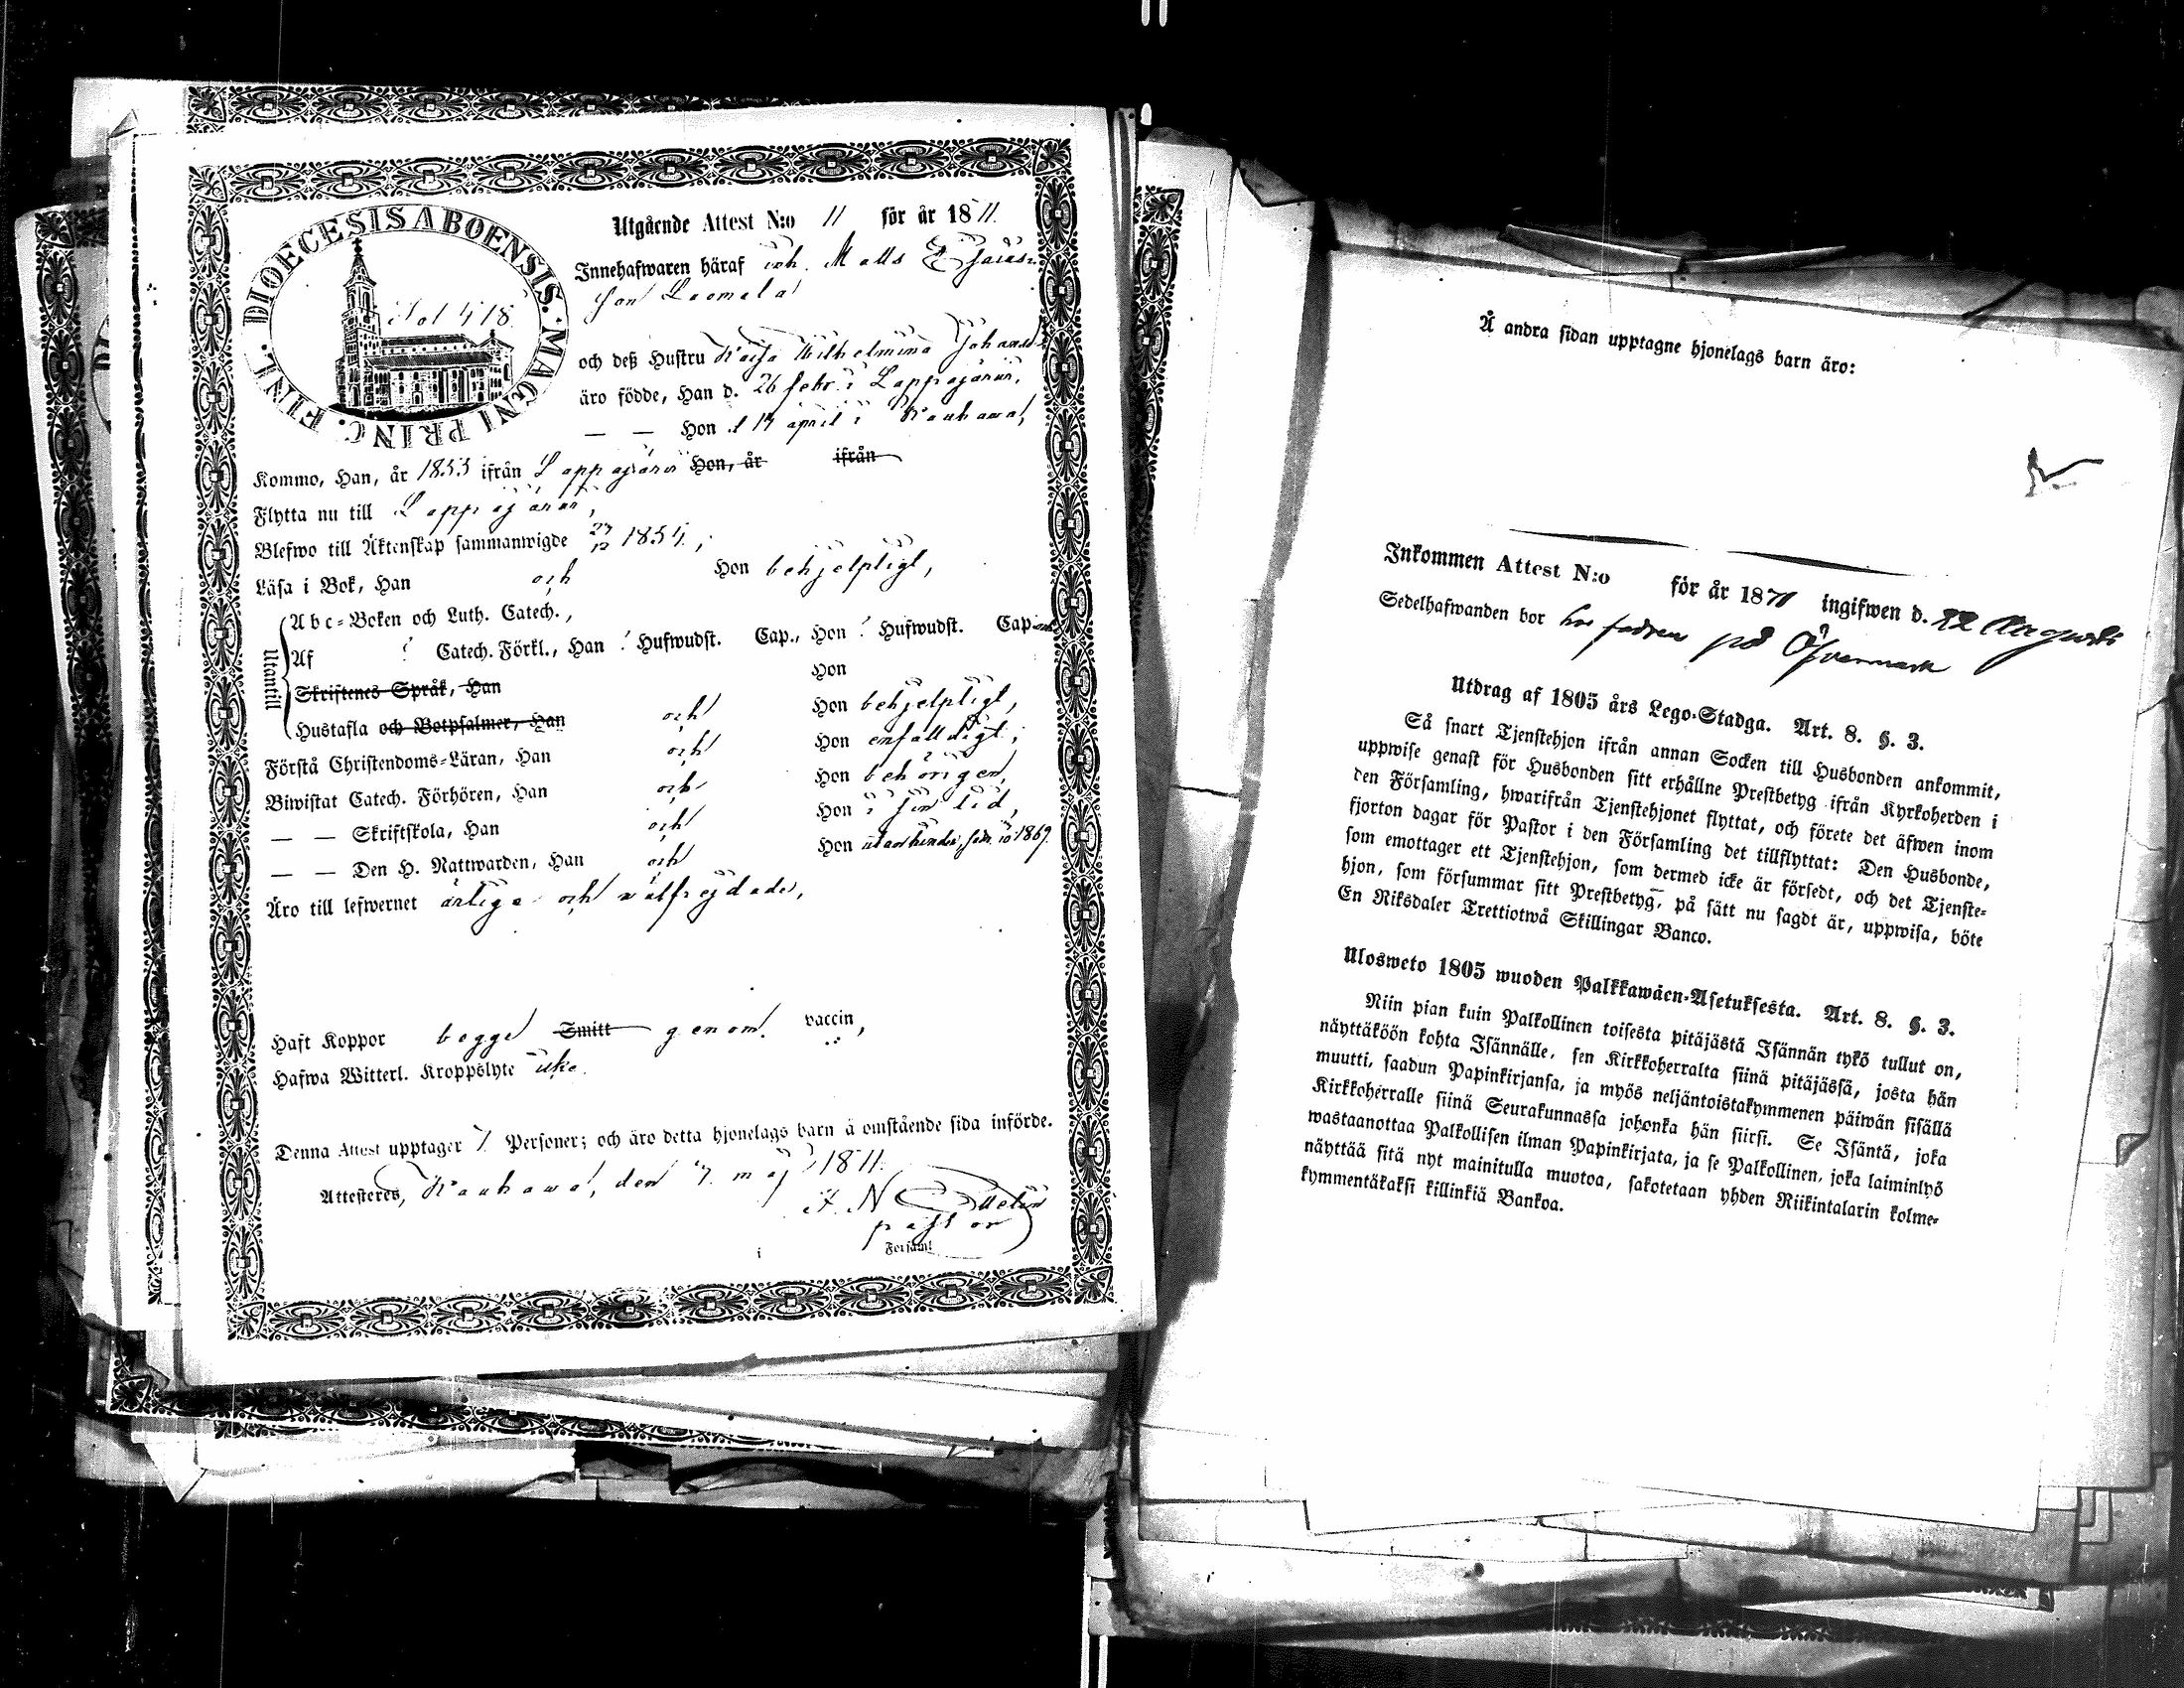 DIOECESIS ABOENSIS. MAGNI PRINC. FINL.
Fol 418.
Utgående Attest N:o 11 för år 1871.
Innehafwaren häraf Matts Esaias-
son Luomala
och deß Hustru Kaisa Wilhelmina Johansd:r
äro födde, Han d. 26 febr. i Lappajärvi,
— — Hon d 14 april i Kauhava,
Kommo, Han, år 1853 ifrån Lappajärvi Hon, år ifrån
Flytta nu till Lappajärvi,
Blefwo till Äktenskap sammanwigde 27/12 1854,
Läsa i Bok, Han och Hon behjelpligt,
Utantill
Abc-Boken och Luth. Catech.,
Af Catech. Förkl., Han Hufwudst. Cap., Hon Hufwudst. Cap
Skriftenes Språk, Han Hon
Hustafla och Botpsalmer, Han och Hon behjelpligt,
Förstå Christendoms-Läran, Han och Hon enfalldigt,
Biwistat Catech. Förhören, Han och Hon behörigen,
— — Skriftskola, Han och Hon i sin tid,
— — Den H. Nattwarden, Han och Hon 1869.
Äro till lefwernet ärliga och välfrejdade,
Haft Koppor begge Smitt genom vaccin,
Hafwa Witterl. Kroppslyte icke.
Denna Attest upptager Personer; och äro detta hjonelags barn å omstående sida införde.
Attesteres, Kauhava, den 7. maj 1871.
pastor
i Församl
Å andra sidan upptagne hjonelags barn äro:
Inkommen Attest N:o för år 1871 ingifwen d. 22 Augusti
Sedelhafwanden bor hos fadren på Öfvermark
Utdrag af 1805 års Lego-Stadga. Art. 8. §. 3.
Så snart Tjenstehjon ifrån annan Socken till Husbonden ankommit,
uppwise genast för Husbonden sitt erhållne Prestbetyg ifrån Kyrkoherden i
den Församling, hwarifrån Tjenstehjonet flyttat, och förete det äfwen inom
fjorton dagar för Pastor i den Församling det tillflyttat: Den Husbonde,
som emottager ett Tjenstehjon, som dermed icke är försedt, och det Tjenste-
hjon, som försummar sitt Prestbetyg, på sätt nu sagdt är, uppwisa, böte
En Riksdaler Trettiotwå Skillingar Banco.
Ulosweto 1805 wuoden Palkkawäen-Asetuksesta. Art. 8. §. 3.
Niin pian kuin Palkollinen toisesta pitäjästä Isännän tykö tullut on,
näyttäköön kohta Isännälle, sen Kirkkoherralta siinä pitäjässä, josta hän
muutti, saadun Papinkirjansa, ja myös neljäntoistakymmenen päiwän sisällä
Kirkkoherralle siinä Seurakunnassa johonka hän siirsi. Se Isäntä, joka
wastaanottaa Palkollisen ilman Papinkirjata, ja se Palkollinen, joka laiminlyö
näyttää sitä nyt mainitulla muotoa, sakotetaan yhden Riikintalarin kolme-
kymmentäkaksi killinkiä Bankoa.